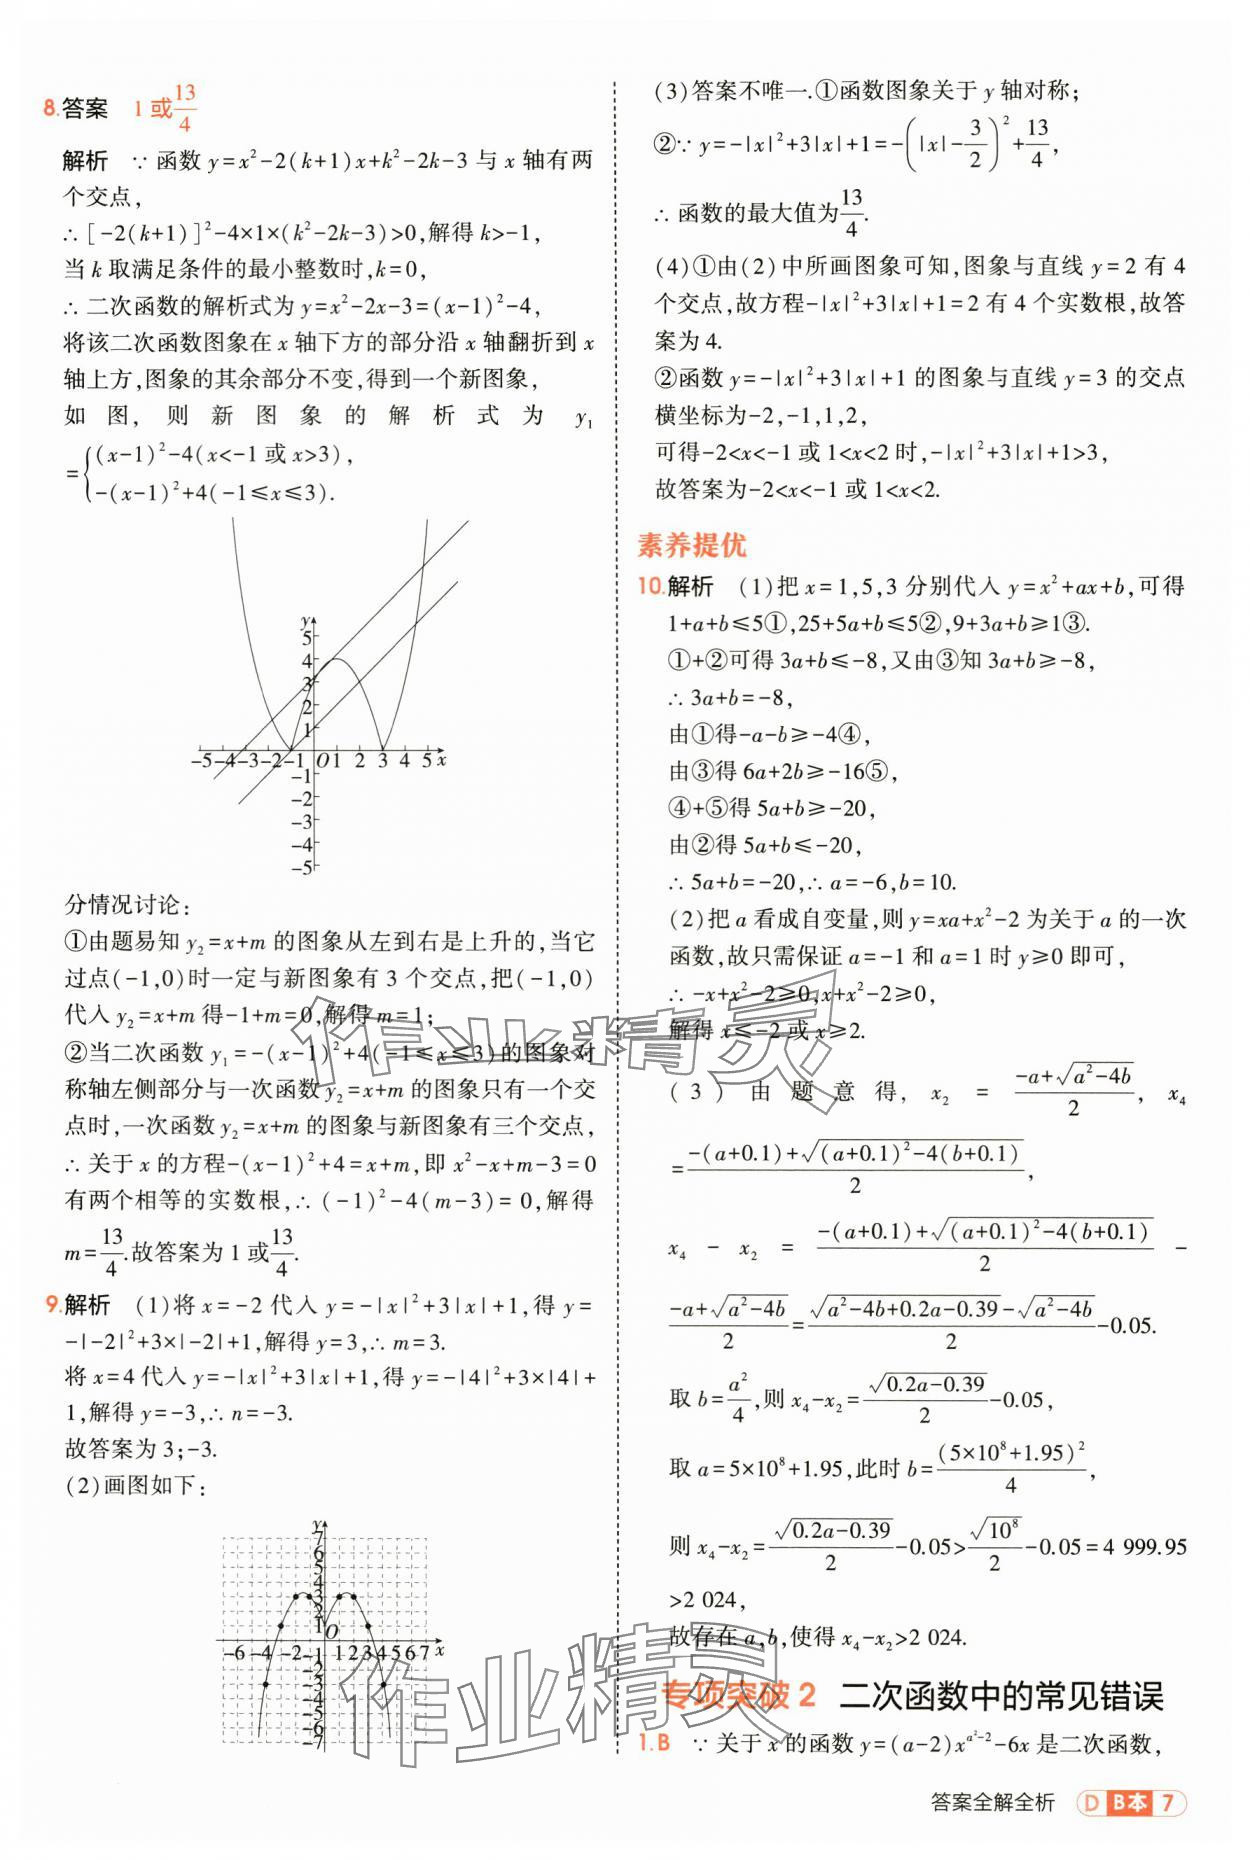 8.答案 1或13/4
解析 ∵函数y=x²-2(k+1)x+k²-2k-3与x轴有两
个交点,
∴[-2(k+1)]²-4×1×(k²-2k-3)>0,解得k>-1,
当k取满足条件的最小整数时,k=0,
∴二次函数的解析式为y=x²-2x-3=(x-1)²-4,
将该二次函数图象在x轴下方的部分沿x轴翻折到x
轴上方,图象的其余部分不变,得到一个新图象,
如图,则新图象的解析式为y₁
={(x-1)²-4(x<-1或x>3),
-(x-1)²+4(-1≤x≤3).
y
5
4
3
2
1
-5-4-3-2-1 O1 2 3 4 5 x
-1
-2
-3
-4
-5
分情况讨论:
①由题易知y₂=x+m的图象从左到右是上升的,当它
过点(-1,0)时一定与新图象有3个交点,把(-1,0)
代入y₂=x+m得-1+m=0,解得m=1;
②当二次函数y₁=-(x-1)²+4(-1≤x≤3)的图象对
称轴左侧部分与一次函数y₂=x+m的图象只有一个交
点时,一次函数y₂=x+m的图象与新图象有三个交点,
∴关于x的方程-(x-1)²+4=x+m,即x²-x+m-3=0
有两个相等的实数根,∴(-1)²-4(m-3)=0,解得
m=13/4.故答案为1或13/4.
9.解析 (1)将x=-2代入y=-|x|²+3|x|+1,得y=
-|-2|²+3×|-2|+1,解得y=3,∴m=3.
将x=4代入y=-|x|²+3|x|+1,得y=-|4|²+3×|4|+
1,解得y=-3,∴n=-3.
故答案为3;-3.
(2)画图如下:
y
7
6
5
4
3
2
1
O
-6 -4 -2 -1 1234567 x
-2
-3
-4
-5
-6
-7
(3)答案不唯一.①函数图象关于y轴对称;
②∵y=-|x|²+3|x|+1=-(|x|-3/2)²+13/4,
∴函数的最大值为13/4.
(4)①由(2)中所画图象可知,图象与直线y=2有4
个交点,故方程-|x|²+3|x|+1=2有4个实数根,故答
案为4.
②函数y=-|x|²+3|x|+1的图象与直线y=3的交点
横坐标为-2,-1,1,2,
可得-2<x<-1或1<x<2时,-|x|²+3|x|+1>3,
故答案为-2<x<-1或1<x<2.
素养提优
10.解析 (1)把x=1,5,3分别代入y=x²+ax+b,可得
1+a+b≤5①,25+5a+b≤5②,9+3a+b≥1③.
①+②可得3a+b≤-8,又由③知3a+b≥-8,
∴3a+b=-8,
由①得-a-b≥-4④,
由③得6a+2b≥-16⑤,
④+⑤得5a+b≥-20,
由②得5a+b≤-20,
∴5a+b=-20,∴a=-6,b=10.
(2)把a看成自变量,则y=xa+x²-2为关于a的一次
函数,故只需保证a=-1和a=1时y≥0即可,
∴-x+x²-2≥0,x+x²-2≥0,
解得x≤-2或x≥2.
(3)由题意得,x₂=(-a+√(a²-4b))/2,x₄
=(-(a+0.1)+√((a+0.1)²-4(b+0.1)))/2,
x₄-x₂=(-(a+0.1)+√((a+0.1)²-4(b+0.1)))/2-
(-a+√(a²-4b))/2=(√(a²-4b+0.2a-0.39)-√(a²-4b))/2-0.05.
取b=a²/4,则x₄-x₂=√(0.2a-0.39)/2-0.05,
取a=5×10⁸+1.95,此时b=(5×10⁸+1.95)²/4,
则x₄-x₂=√(0.2a-0.39)/2-0.05>√(10⁸)/2-0.05=4 999.95
>2 024,
故存在a,b,使得x₄-x₂>2 024.
专项突破2 二次函数中的常见错误
1.B ∵关于x的函数y=(a-2)x^(a²-2)-6x是二次函数,
答案全解全析 D B本 7
作业精灵
作业精灵